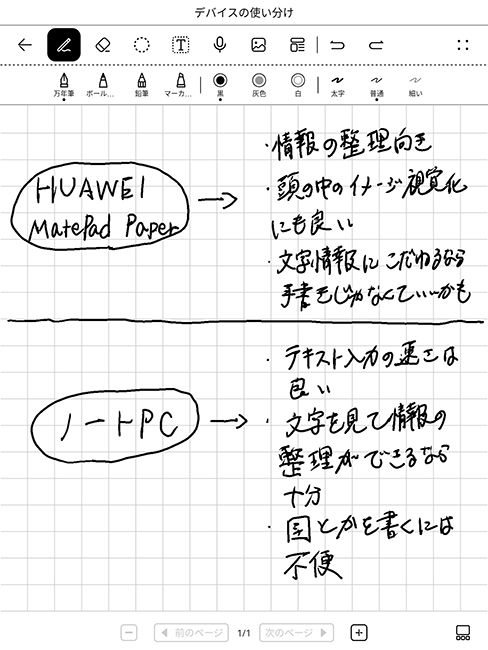 デバイスの使い分け
万年筆 ボール… 鉛筆 マーカ… 黒 灰色 白 太字 普通 細い
HUAWEI
MatePad Paper
・情報の整理向き
・頭の中のイメージ視覚化
にも良い
・文字情報にこだわるなら
手書きじゃなくていいかも
ノートPC
・テキスト入力の速さは
良い
・文字を見て情報の
整理ができるなら
十分
・図とかを書くには
不便
前のページ 1/1 次のページ